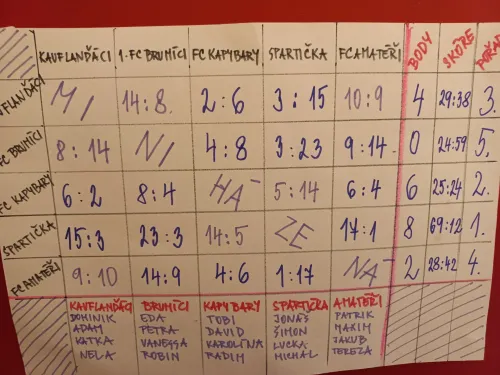 KAUFLANĎÁCI 1.FC BRUMÍCI FC KAPYBARY SPARTIČKA FC AMATÉŘI BODY SKÓRE POŘAD
UFLANĎÁCI MI 14:8 2:6 3:15 10:9 4 29:38 3.
FC BRUMÍCI 8:14 NI 4:8 3:23 9:14 0 24:59 5.
FC KAPYBARY 6:2 8:4 HÁ 5:14 6:4 6 25:24 2.
SPARTIČKA 15:3 23:3 14:5 ZE 17:1 8 69:12 1.
FC AMATÉŘI 9:10 14:9 4:6 1:17 NÁ 2 28:42 4.
KAUFLANĎÁCI BRUMÍCI KAPYBARY SPARTIČKA AMATÉŘI
DOMINIK EDA TOBI JONÁŠ PATRIK
ADAM PETRA DAVID ŠIMON MAXIM
KATKA VANESSA KAROLÍNA LUCKA JAKUB
NELA ROBIN RADIM MICHAL TEREZA